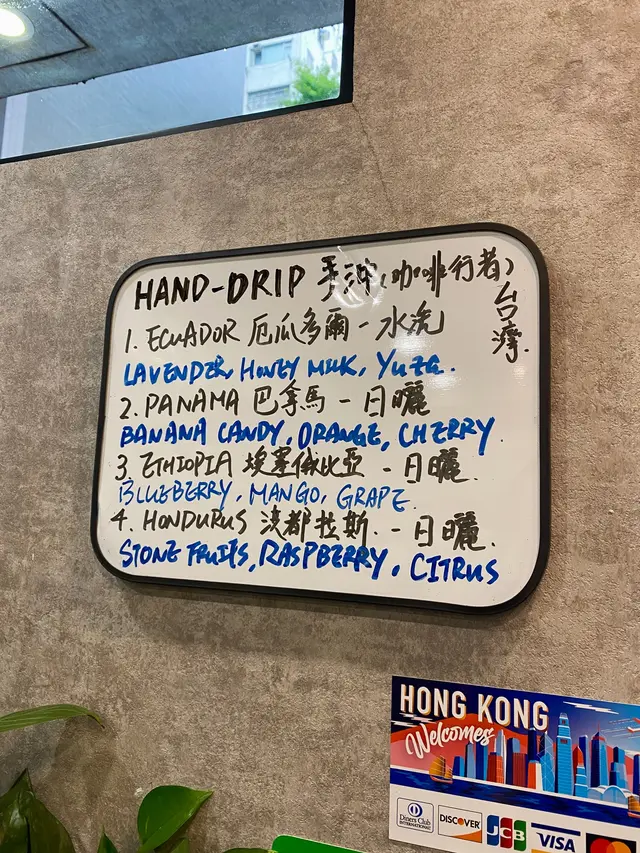 HAND-DRIP 手沖 (咖啡行者)
台灣.
1. ECUADOR 厄瓜多爾 - 水洗
LAVENDER, HONEY MILK, YUZU.
2. PANAMA 巴拿馬 - 日曬
BANANA CANDY, ORANGE, CHERRY.
3. ETHIOPIA 埃塞俄比亞 - 日曬.
BLUEBERRY, MANGO, GRAPE.
4. HONDURUS 洪都拉斯. - 日曬.
STONE FRUITS, RASPBERRY, CITRUS
HONG KONG
Welcomes
Diners Club INTERNATIONAL DISCOVER JCB VISA